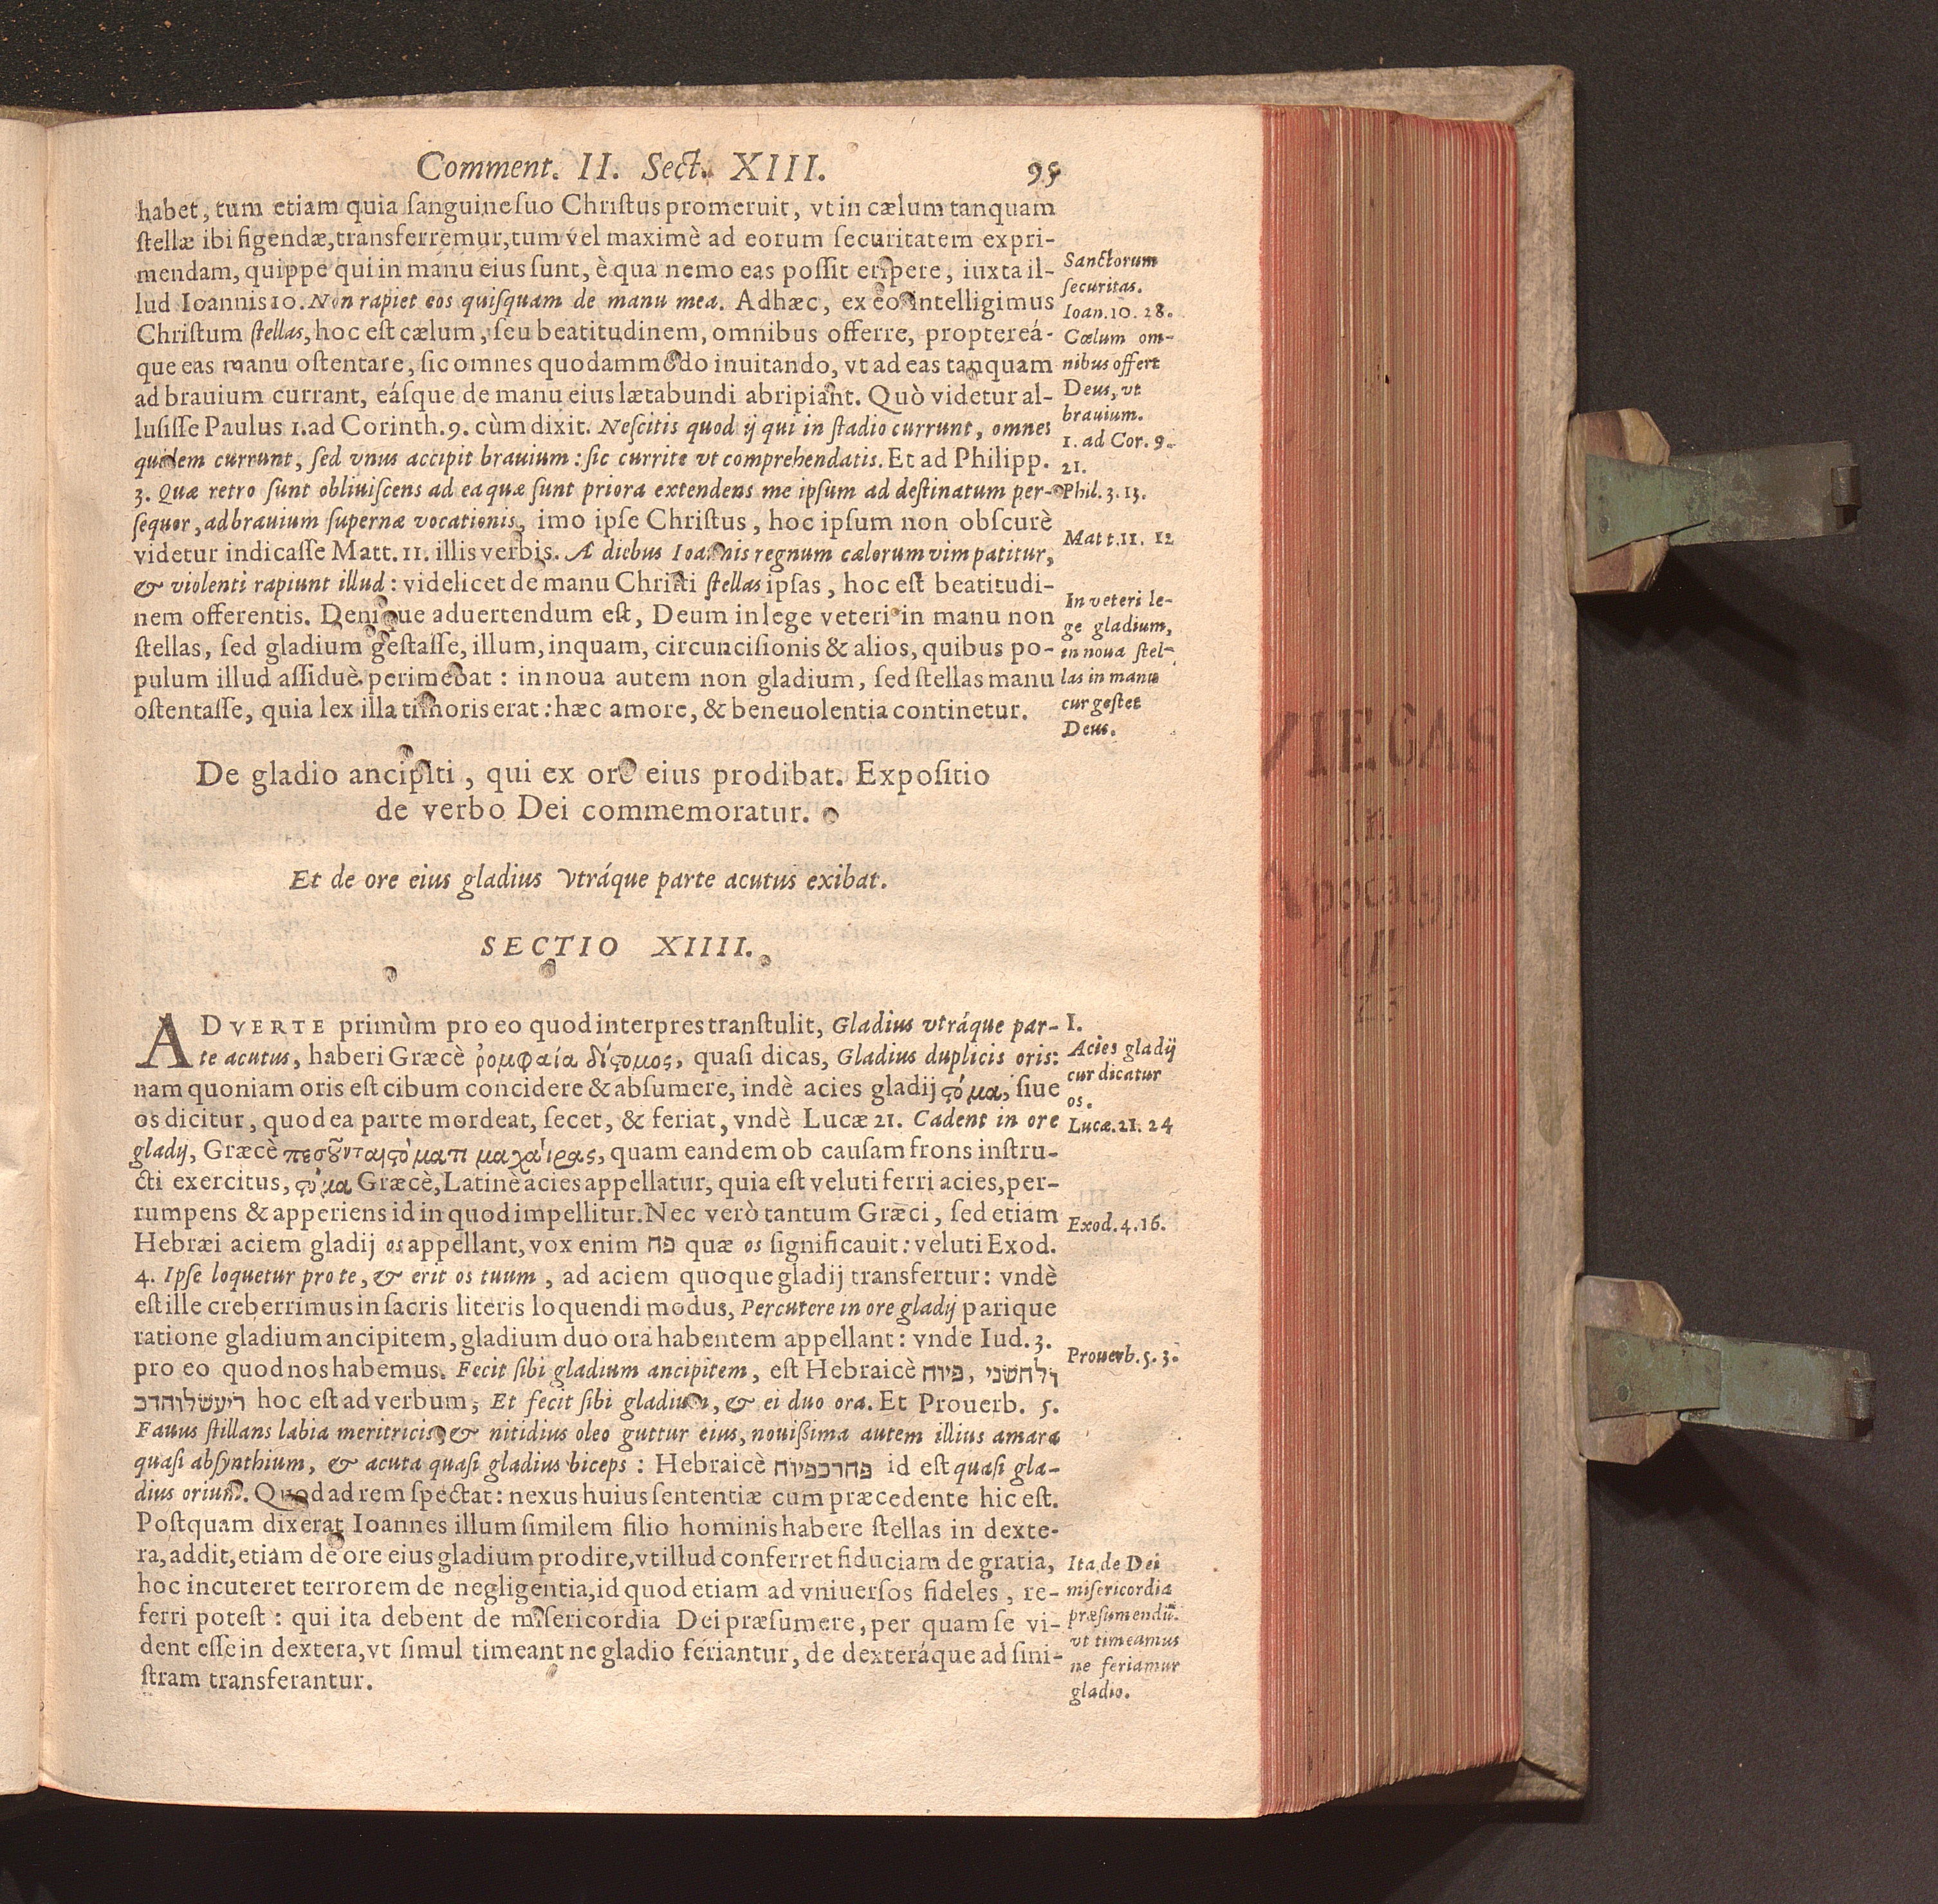 Comment. II. Sect. XIII. 95
habet, tum etiam quia ſanguine ſuo Chriſtus promeruit, vt in cælum tanquam
ſtellæ ibi figendæ, transferremur, tum vel maximè ad eorum ſecuritatem expri-
mendam, quippe qui in manu eius ſunt, è qua nemo eas poſſit eripere, iuxta il-
lud Ioannis 10. Non rapiet eos quiſquam de manu mea. Adhæc, ex eo intelligimus
Chriſtum ſtellas, hoc eſt cælum, ſeu beatitudinem, omnibus offerre, proptereá-
que eas manu oſtentare, ſic omnes quodammodo inuitando, vt ad eas tanquam
ad brauium currant, eáſque de manu eius lætabundi abripiant. Quò videtur al-
luſiſſe Paulus 1. ad Corinth. 9. cùm dixit. Neſcitis quod ij qui in ſtadio currunt, omnes
quidem currunt, ſed vnus accipit brauium: ſic currite vt comprehendatis. Et ad Philipp.
3. Quæ retro ſunt obliuiſcens ad ea quæ ſunt priora extendens me ipſum ad deſtinatum per-
ſequor, ad brauium ſupernæ vocationis, imo ipſe Chriſtus, hoc ipſum non obſcurè
videtur indicaſſe Matt. 11. illis verbis. A diebus Ioannis regnum cælorum vim patitur,
& violenti rapiunt illud: videlicet de manu Chriſti ſtellas ipſas, hoc eſt beatitudi-
nem offerentis. Denique aduertendum eſt, Deum in lege veteri in manu non
ſtellas, ſed gladium geſtaſſe, illum, inquam, circunciſionis & alios, quibus po-
pulum illud aſſiduè perimebat: in noua autem non gladium, ſed ſtellas manu
oſtentaſſe, quia lex illa timoris erat: hæc amore, & beneuolentia continetur.
Sanctorum
ſecuritas.
Ioan. 10. 28.
Cœlum om-
nibus offert
Deus, vt
brauium.
1. ad Cor. 9.
21.
Phil. 3. 13.
Matt. 11. 12
In veteri le-
ge gladium,
in noua ſtel-
las in manu
cur geſtet
Deus.
De gladio ancipiti, qui ex ore eius prodibat. Expoſitio
de verbo Dei commemoratur.
Et de ore eius gladius vtráque parte acutus exibat.
SECTIO XIIII.
ADVERTE primùm pro eo quod interpres tranſtulit, Gladius vtráque par-
te acutus, haberi Græcè ῥομφαία δίϛομος, quaſi dicas, Gladius duplicis oris:
nam quoniam oris eſt cibum concidere & abſumere, indè acies gladij ϛόμα, ſiue
os dicitur, quod ea parte mordeat, ſecet, & feriat, vndè Lucæ 21. Cadent in ore
gladij, Græcè πεσοῦνται ϛόματι μαχαίρας, quam eandem ob cauſam frons inſtru-
cti exercitus, ϛόμα Græcè, Latinè acies appellatur, quia eſt veluti ferri acies, per-
rumpens & apperiens id in quod impellitur. Nec verò tantum Græci, ſed etiam
Hebræi aciem gladij os appellant, vox enim פח quæ os ſignificauit: veluti Exod.
4. Ipſe loquetur pro te, & erit os tuum, ad aciem quoque gladij transfertur: vndè
eſt ille creberrimus in ſacris literis loquendi modus, Percutere in ore gladij parique
ratione gladium ancipitem, gladium duo ora habentem appellant: vnde Iud. 3.
pro eo quod nos habemus. Fecit ſibi gladium ancipitem, eſt Hebraicè פיוח, ולחשני
ריעשלוהדכ hoc eſt ad verbum, Et fecit ſibi gladium, & ei duo ora. Et Prouerb. 5.
Fauus ſtillans labia meritricis, & nitidius oleo guttur eius, nouiſſima autem illius amara
quaſi abſynthium, & acuta quaſi gladius biceps: Hebraicè פחרכפיוח id eſt quaſi gla-
dius orium. Quod ad rem ſpectat: nexus huius ſententiæ cum præcedente hic eſt.
Poſtquam dixerat Ioannes illum ſimilem filio hominis habere ſtellas in dexte-
ra, addit, etiam de ore eius gladium prodire, vt illud conferret fiduciam de gratia,
hoc incuteret terrorem de negligentia, id quod etiam ad vniuerſos fideles, re-
ferri poteſt: qui ita debent de miſericordia Dei præſumere, per quam ſe vi-
dent eſſe in dextera, vt ſimul timeant ne gladio feriantur, de dexteráque ad ſini-
ſtram transferantur.
1.
Acies gladij
cur dicatur
os.
Lucæ. 21. 24
Exod. 4. 16.
Prouerb. 5. 3.
Ita de Dei
miſericordia
præſumendũ.
vt timeamus
ne feriamur
gladio.
VIEGAS
In
Apocalyp